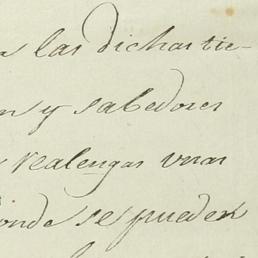 a las dichas tie-
n y sabedores
realengas unas
onde se pueden